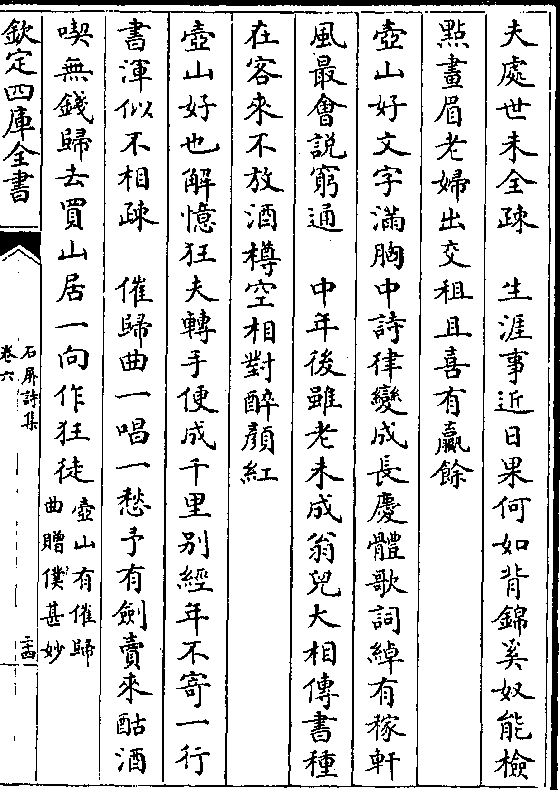 夫處世未全疎　生涯事近日果何如背錦奚奴能檢
點畫眉老婦出交租且喜有贏餘
壺山好文字滿胸中詩律變成長慶體歌詞綽有稼軒
風最會説窮通　中年後雖老未成翁兒大相傳書種
在客來不放酒樽空相對醉顔紅
壺山好也解憶狂夫轉手便成千里别經年不寄一行
書渾似不相疎　催歸曲一唱一愁予有劍賣來酤酒
喫無錢歸去買山居一向作狂徒壺山有催歸
曲贈僕甚妙
欽定四庫全書
石屏詩集
卷六
二十四